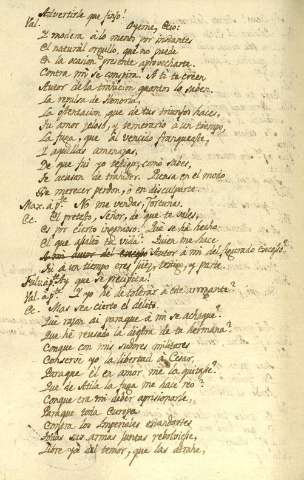 Advertirle que finjo.
Val. Oyeme, Ecio:
Y modera á lo menos por instantes
El natural orgullo, que no puede
En la ocasion presente aprovecharte.
Contra mi se conspira. A ti te creen
Autor de la traicion quantos la saben.
La repulsa de Honoria,
La obstentacion que de tus triunfos haces,
Tu amor zeloso, y temerario á un tiempo
La fuga, que al vencido franqueaste,
Y aquellas amenazas,
De que fui yo testigo, como sabes,
Te acusan de traidor. Piensa en el modo
De merecer perdon, ó en disculparte.
Max. ap. No me vendas, fortuna.
Ec. El pretexto, Señor, de que te vales,
Es por cierto ingenioso. Que se ha hecho
El que asaltó tu vida? Quien me hace
Autor á mi del figurado
Tu á un tiempo eres juez, testigo, y parte.
Fulv. ap. Ay que se precipita!
Val. ap. Y yo hé de tolerar á este arrogante?
Ec. Mas sea cierto el delito.
Que razon ai paraque á mi se achaque?
Que hé reusado la diestra de tu hermana?
Conque con mis sudores militares
Conserve yo la libertad á Cesar,
Paraque él en amor me la quitase?
Que de Atila la fuga me hace reo?
Conque era mi deber aprisionarle,
Paraque toda Europa
Contra los Imperiales estandartes
sus armas juntas rebolviese,
Libre yá del temor, que las atrahe,